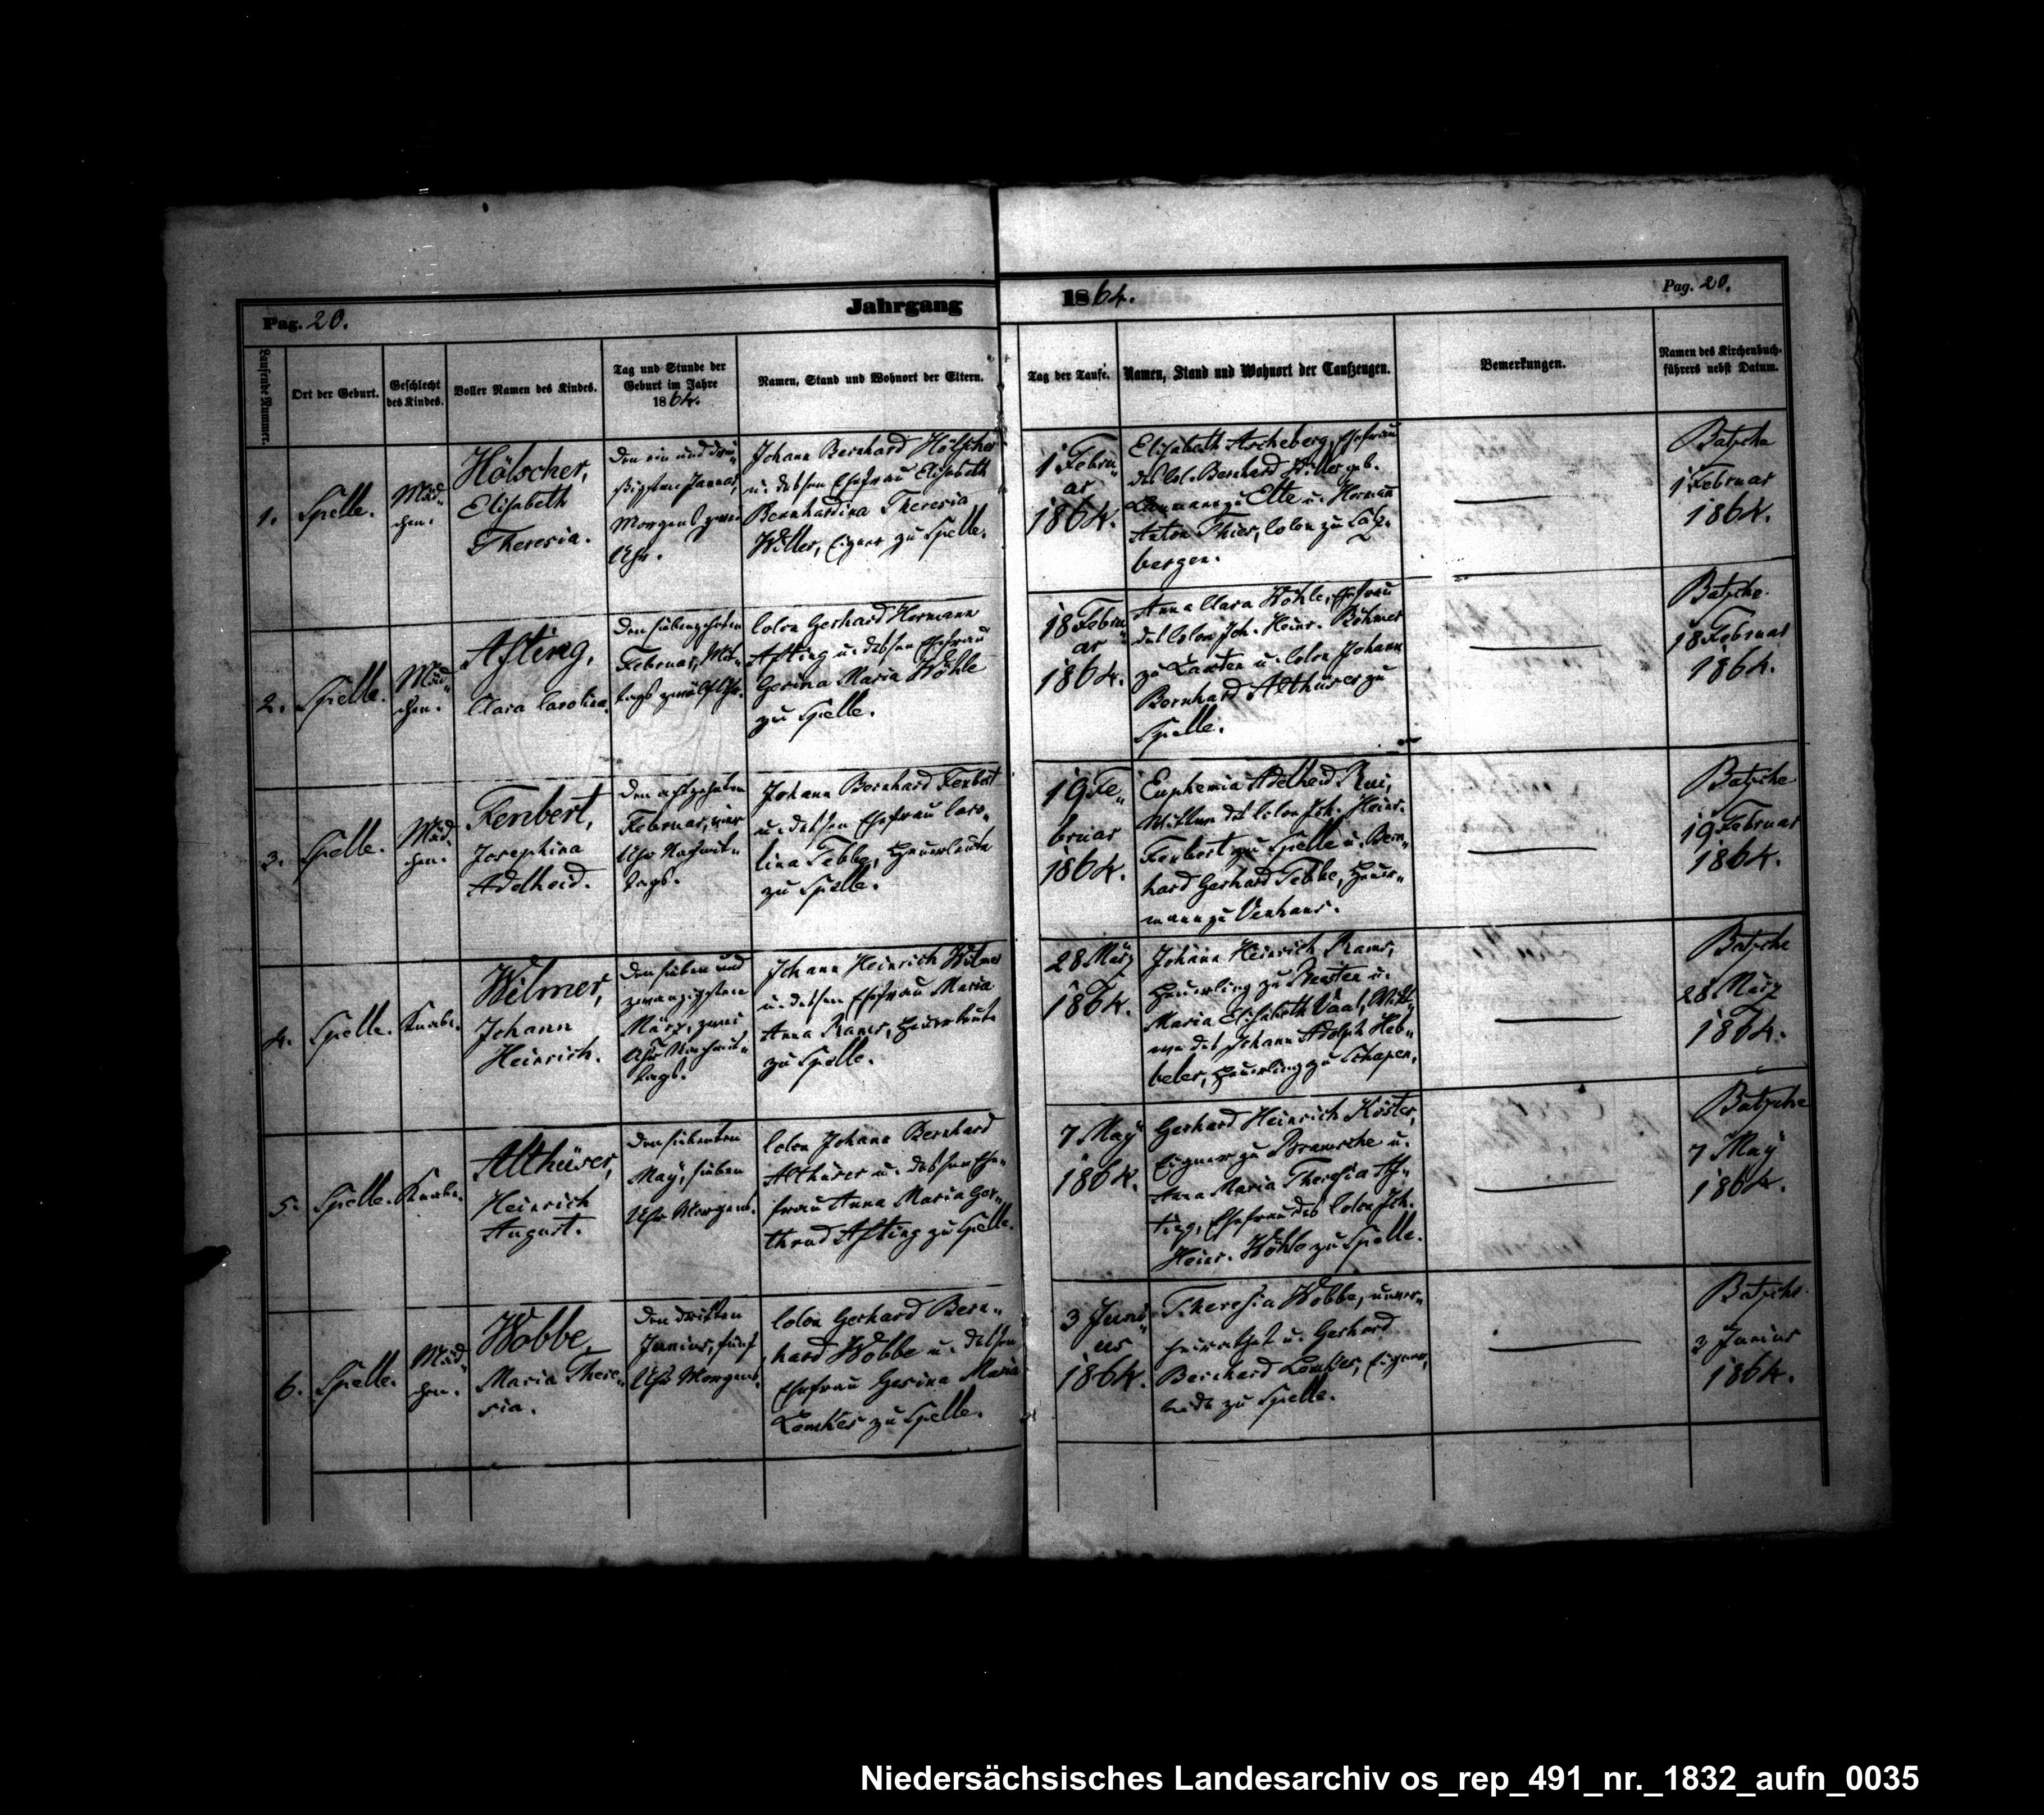 Pag. 20.
Jahrgang 1864.
Pag. 20.
Laufende Nummer.
Ort der Geburt.
Geschlecht
des Kindes.
Voller Namen des Kindes.
Tag und Stunde der
Geburt im Jahre
1864.
Namen, Stand und Wohnort der Eltern.
Tag der Taufe.
Namen, Stand und Wohnort der Taufzeugen.
Bemerkungen.
Namen des Kirchenbuch-
führers nebst Datum.
1.
Spelle.
Mäd„
chen.
Hölscher,
Elisabeth
Theresia.
Den ein und drei„
ßigsten Januar,
Morgens zwei
Uhr.
Johann Bernhard Hölscher
u. dessen Ehefrau Elisabeth
Bernhardina Theresia
Willer, Eigner zu Spelle.
1 Febru„
ar
1864.
Elisabeth Ascheberg, Ehefrau
des Col. Bernhard Willer geb.
zu Elte u. Herman
Anton Thier, Colon zu Salz„
bergen.
Batsche
1 Februar
1864.
2.
Spelle.
Mäd„
chen.
Asting,
Clara Carolina.
Den siebenzehnten
Februar, Mit„
tags zwölf Uhr.
Colon Gerhard Hermann
Asting u. dessen Ehefrau
Gesina Maria Wöhle
zu Spelle.
18 Febru„
ar
1864.
Anna Clara Wöhle, Ehefrau
des Colon Joh. Heinr. Röhmer
zu Lanten u. Colon Johann
Bernhard Althüser zu
Spelle.
Batsche.
18 Februar
1864.
3.
Spelle.
Mäd„
chen.
Fenbert,
Josephina
Adelheid.
Den achtzehnten
Februar, vier
Uhr Nachmit„
tags.
Johann Bernhard Fenbert
u. dessen Ehefrau Caro„
lina Tebbe, Heuerleute
zu Spelle.
19 Fe„
bruar
1864.
Euphemia Adelheid
Wittwe des Colon Joh. Heinr.
Fenbert zu Spelle u. Bern„
hard Gerhard Tebbe, Heuer„
mann zu Venhaus.
Batsche
19 Februar
1864.
4.
Spelle.
Knabe.
Wilmer,
Johann
Heinrich.
Den sieben und
zwanzigsten
März, zwei
Uhr Nachmit„
tags.
Johann Heinrich Wilmer
u. dessen Ehefrau Maria
Anna Ramer, Heuerleute
zu Spelle.
28 März
1864.
Johann Heinrich Ramer,
Heuerling zu Beesten u.
Maria Elisabeth Vaal, Witt„
we des Johann Adolph Heb„
beler, Heuerling zu Schapen.
Batsche
28 März
1864.
5.
Spelle.
Knabe.
Althüser,
Heinrich
August.
Den siebenten
May, sieben
Uhr Morgens.
Colon Johann Bernhard
Althüser u. dessen Ehe„
frau Anna Maria Ger„
thrud Asting zu Spelle.
7 May
1864.
Gerhard Heinrich Köster,
Eigner zu Bramsche u.
Anna Maria Theresia As„
ting, Ehefrau des Colon Joh.
Heinr. Wöhle zu Spelle.
Batsche
7 May
1864.
6.
Spelle.
Mäd„
chen.
Wobbe,
Maria There„
sia.
Den dritten
Junius, fünf
Uhr Morgens.
Colon Gerhard Bern„
hard Wobbe u. dessen
Ehefrau Gesina Maria
Lomker zu Spelle.
3 Juni„
us
1864.
Theresia Wobbe, unver„
heirathet u. Gerhard
Bernhard Lomker, Eigner,
beide zu Spelle.
Batsche.
3 Junius
1864.
Niedersächsisches Landesarchiv os_rep_491_nr._1832_aufn_0035